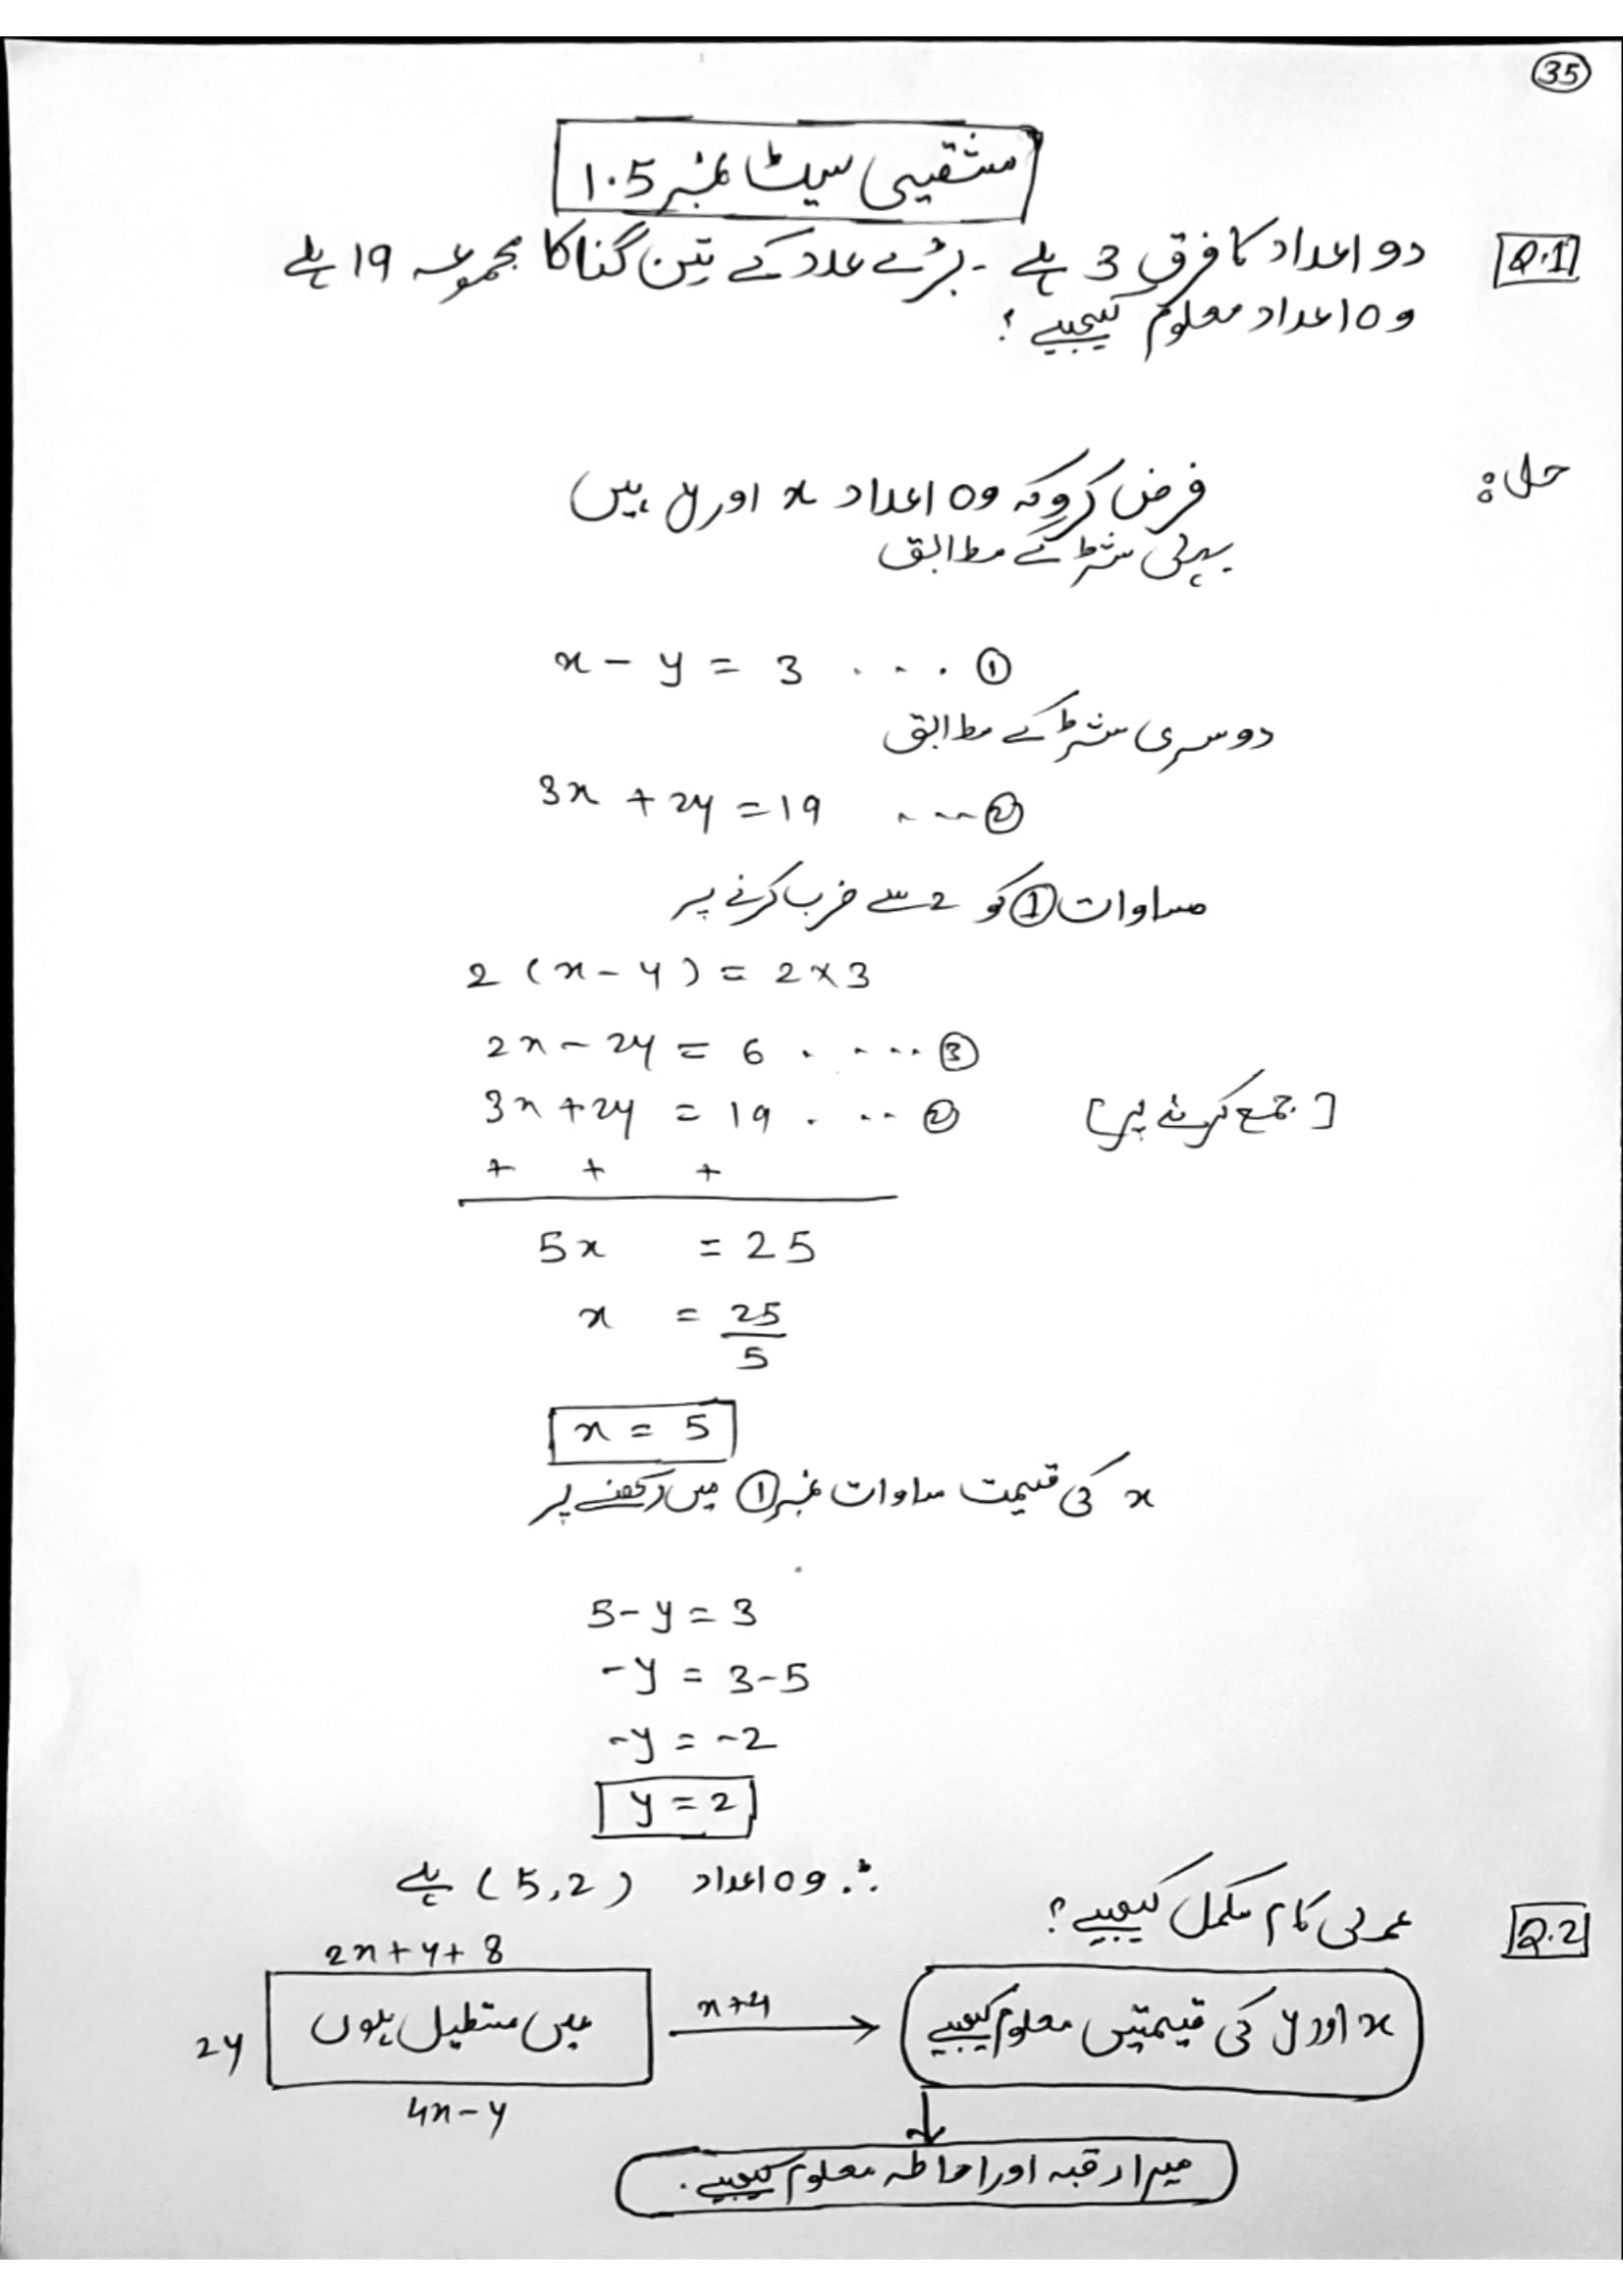 35
مشقیی سیٹ نمبر 1.5
Q.1 دو اعداد کا فرق 3 ہے - بڑے عدد کے تین گنا کا مجموعہ 19 ہے
وہ اعداد معلوم کیجیے ؟
حل :
فرض کرو کہ وہ اعداد x اور y ہیں
پہلی شرط کے مطابق
x - y = 3 . . . . ①
دوسری شرط کے مطابق
3x + 2y = 19 . . . . ②
مساوات ① کو 2 سے ضرب کرنے پر
2 (x - y) = 2 × 3
2x - 2y = 6 . . . . . ③
3x + 2y = 19 . . . ② [جمع کرنے پر]
+ + +
5x = 25
x = 25/5
x = 5
x کی قیمت مساوات نمبر ① میں رکھنے پر
5 - y = 3
-y = 3 - 5
-y = -2
y = 2
∴ وہ اعداد (5,2) ہے
Q.2 عملی کام مکمل کیجیے ؟
2x + y + 8
2y
میں مستطیل ہوں
x+4
x اور y کی قیمتیں معلوم کیجیے
4x - y
میرا رقبہ اور احاطہ معلوم کیجیے.